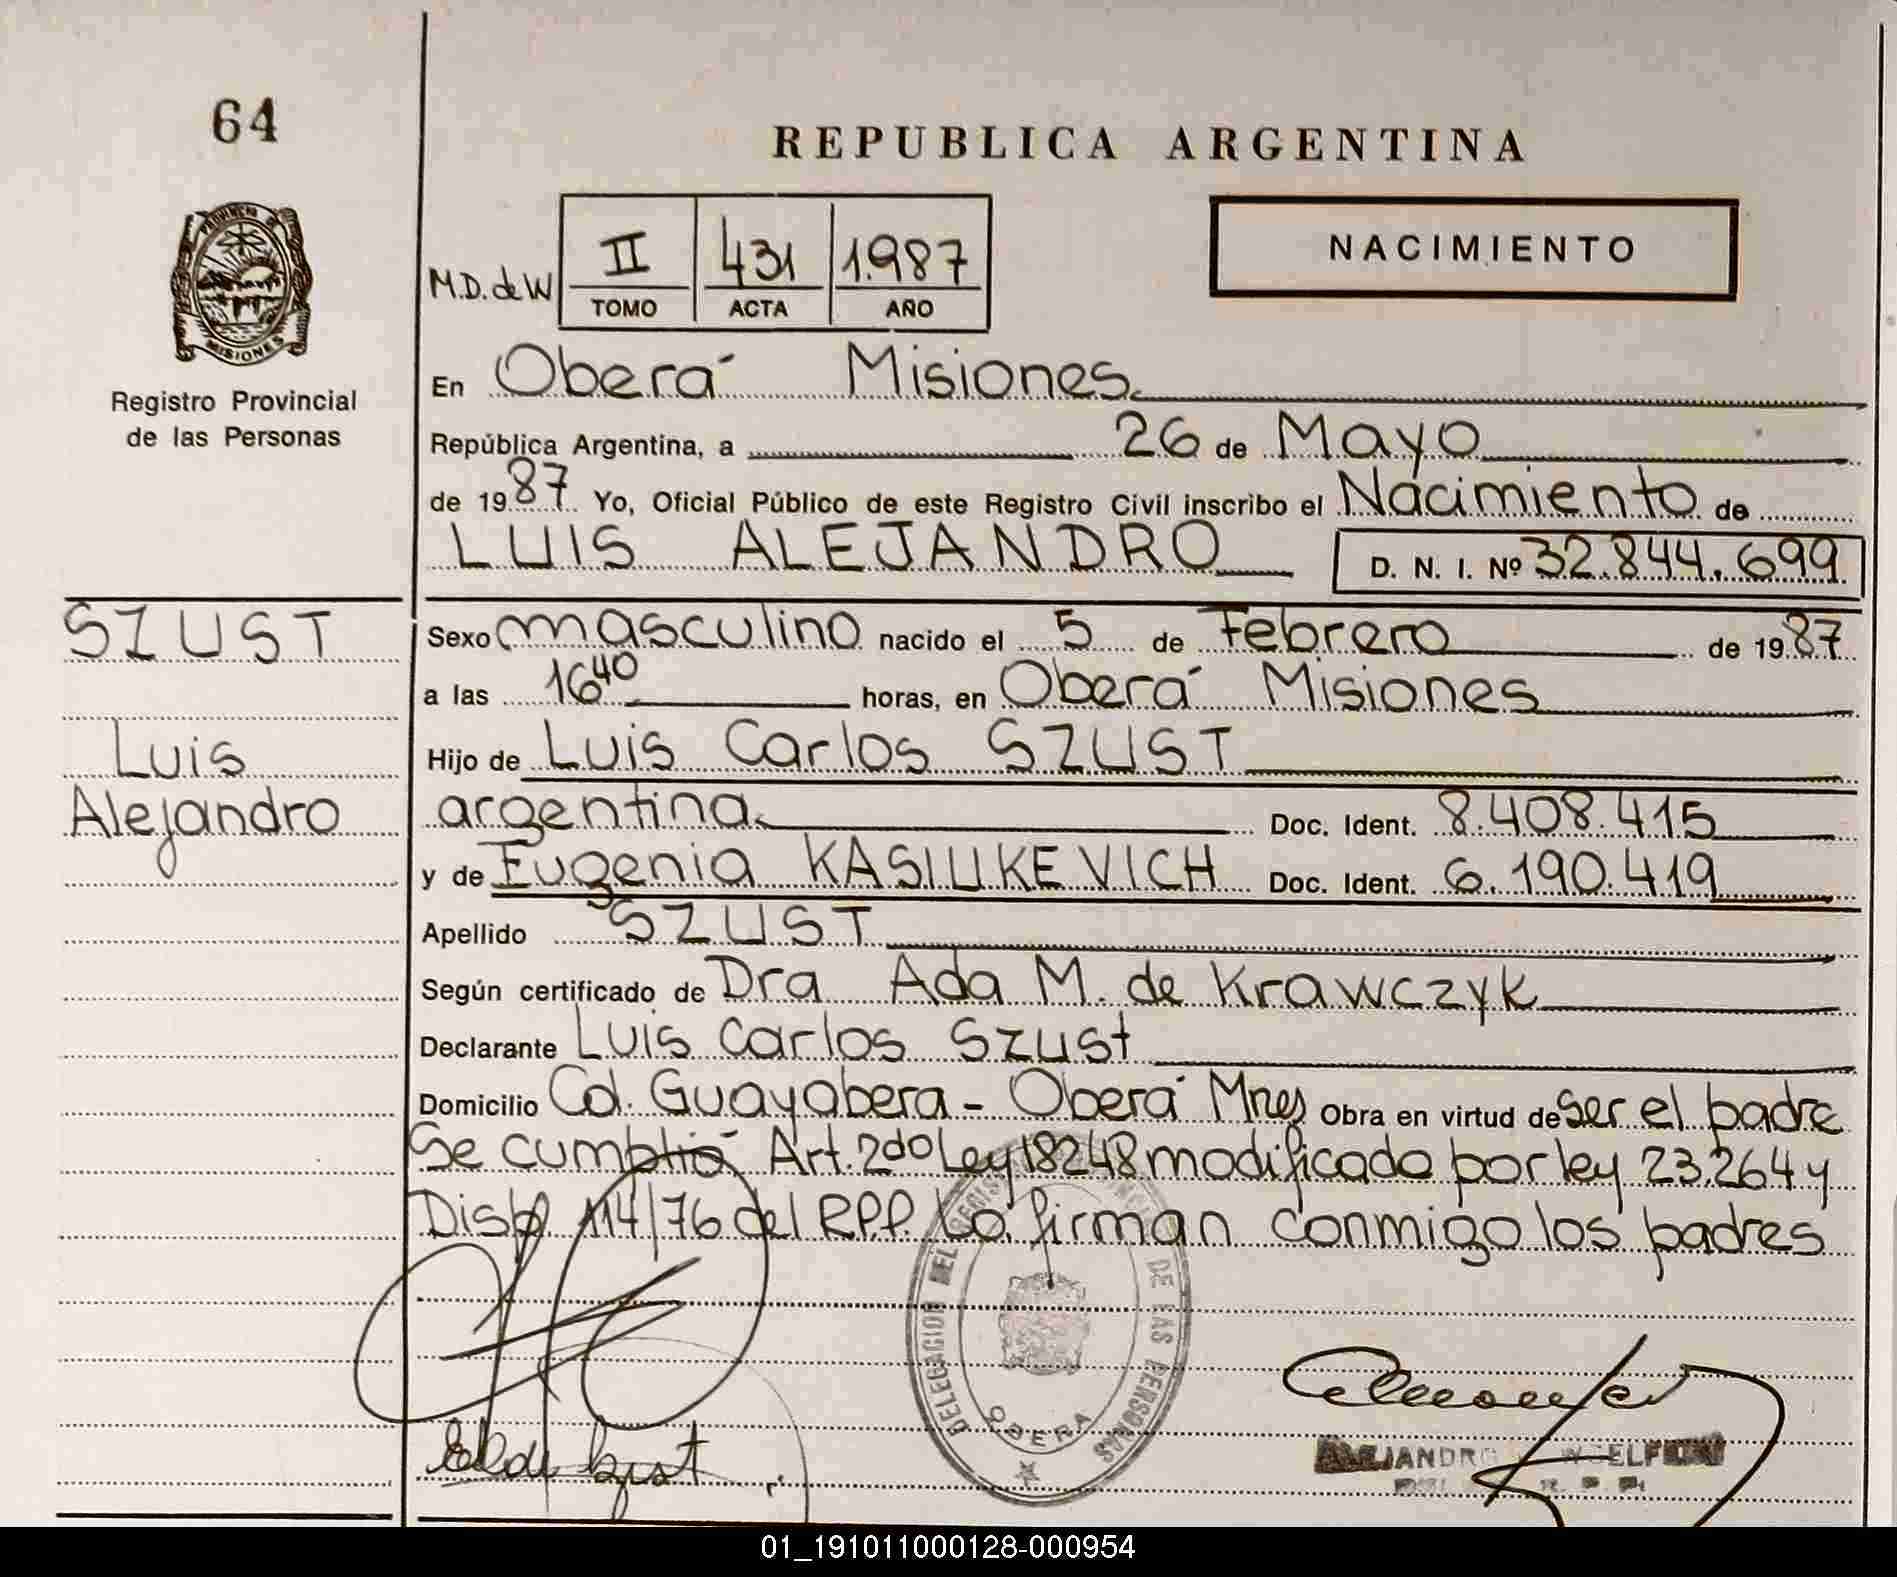 64
REPUBLICA ARGENTINA
PROVINCIA DE
MISIONES
Registro Provincial
de las Personas
M.D. de W
II 431 1.987
TOMO ACTA AÑO
NACIMIENTO
En Oberá Misiones
República Argentina, a 26 de Mayo
de 1987 Yo, Oficial Público de este Registro Civil inscribo el Nacimiento de
LUIS ALEJANDRO D. N. I. Nº 32.844.699
SZUST
Luis
Alejandro
Sexo masculino nacido el 5 de Febrero de 1987
a las 16 40 horas, en Oberá Misiones
Hijo de Luis Carlos SZUST
argentina Doc. Ident. 8.408.415
y de Eugenia KASIUKEVICH Doc. Ident. 6.190.419
Apellido SZUST
Según certificado de Dra Ada M. de Krawczyk
Declarante Luis Carlos Szust
Domicilio Col. Guayabera - Oberá Mnes Obra en virtud de ser el padre
Se cumplió Art. 2do Ley 18248 modificado por ley 23.264 y
Disp. 114/76 del R.P.P. Lo firman conmigo los padres
DELEGACION DEL REGISTRO DE LAS PERSONAS
OBERA
01_191011000128-000954